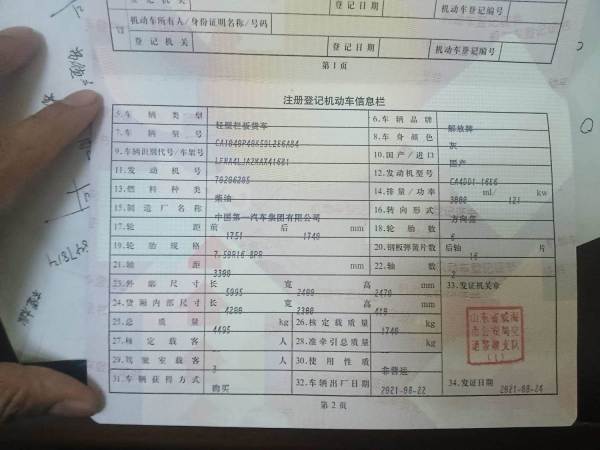 登记机关 登记日期 机动车登记编号
机动车所有人/身份证明名称/号码
登记机关 登记日期 机动车登记编号
第1页
注册登记机动车信息栏
5.车辆类型 轻型栏板货车 6.车辆品牌 解放牌
7.车辆型号 8.车身颜色 灰
9.车辆识别代号/车架号 10.国产/进口 国产
11.发动机号 70206205 12.发动机型号
13.燃料种类 柴油 14.排量/功率 3000 ml/ 121 kw
15.制造厂名称 中国第一汽车集团有限公司 16.转向形式 方向盘
17.轮距 前 1751 后 1740 mm 18.轮胎数 6
19.轮胎规格 7.50R16 8PR 20.钢板弹簧片数 后轴 16 片
21.轴距 3300 mm 22.轴数 2
23.外廓尺寸 长 5995 宽 高 2470 mm 33.发证机关章
24.货厢内部尺寸 长 4200 宽 2300 高 410 mm
25.总质量 4495 kg 26.核定载质量 1740 kg
27.核定载客 人 28.准牵引总质量 kg
29.驾驶室载客 3 人 30.使用性质 非营运
31.车辆获得方式 购买 32.车辆出厂日期 2021-08-22 34.发证日期 2021-08-24
山东省威海
市公安局交
通警察支队
(1)
第2页